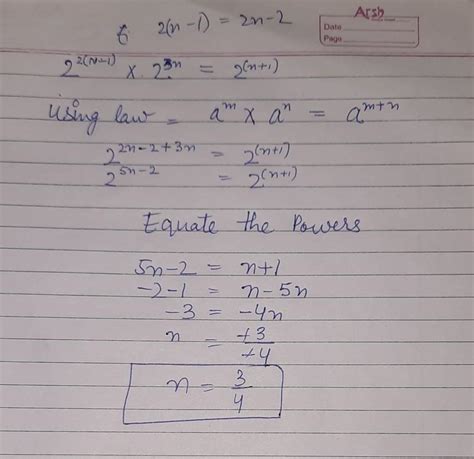 Arsh
Date
Page
2(n-1) = 2n-2
2^2(n-1) × 2^3n = 2^(n+1)
Using law = a^m × a^n = a^m+n
2^2n-2+3n = 2^(n+1)
2^5n-2 = 2^(n+1)
Equate the Powers
5n-2 = n+1
-2-1 = n-5n
-3 = -4n
n = +3/+4
n = 3/4